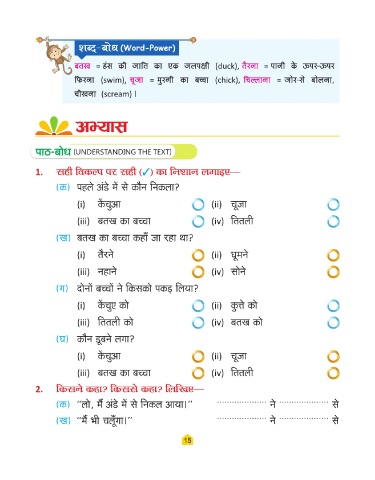 शब्द-बोध (Word-Power)
बतख = हंस की जाति का एक जलपक्षी (duck), तैरना = पानी के ऊपर-ऊपर
फिरना (swim), चूजा = मुरगी का बच्चा (chick), चिल्लाना = जोर-से बोलना,
चीखना (scream) ।
अभ्यास
पाठ-बोध (UNDERSTANDING THE TEXT)
1. सही विकल्प पर सही (✓) का निशान लगाइए—
(क) पहले अंडे में से कौन निकला?
(i) केंचुआ (ii) चूजा
(iii) बतख का बच्चा (iv) तितली
(ख) बतख का बच्चा कहाँ जा रहा था?
(i) तैरने (ii) घूमने
(iii) नहाने (iv) सोने
(ग) दोनों बच्चों ने किसको पकड़ लिया?
(i) केंचुए को (ii) कुत्ते को
(iii) तितली को (iv) बतख को
(घ) कौन डूबने लगा?
(i) केंचुआ (ii) चूजा
(iii) बतख का बच्चा (iv) तितली
2. किसने कहा? किससे कहा? लिखिए—
(क) “लो, मैं अंडे में से निकल आया।” .................... ने .................... से
(ख) “मैं भी चलूँगा।” .................... ने .................... से
15